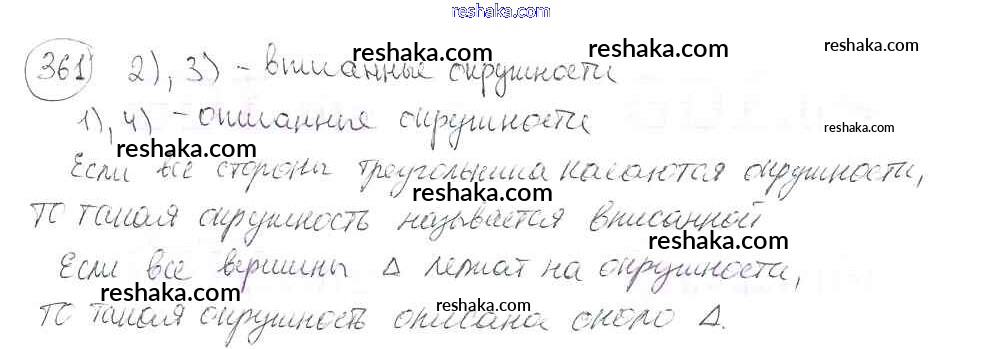 reshaka.com
361 2), 3) - вписанные окружности
reshaka.com reshaka.com
1), 4) - описанные окружности
reshaka.com
reshaka.com
Если все стороны треугольника касаются окружности,
reshaka.com
то такая окружность называется вписанной
reshaka.com
Если все вершины Δ лежат на окружности,
reshaka.com reshaka.com
то такая окружность описана около Δ.